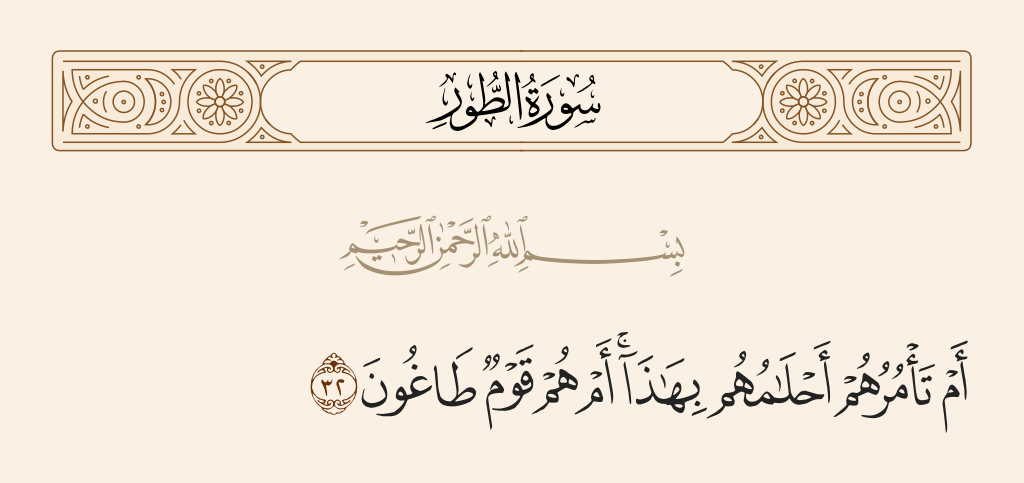 سُورَةُ الطُّورِ
بِسْمِ ٱللَّهِ ٱلرَّحْمَٰنِ ٱلرَّحِيمِ
أَمْ تَأْمُرُهُمْ أَحْلَـٰمُهُم بِهَـٰذَآ ۚ أَمْ هُمْ قَوْمٌ طَاغُونَ ٣٢